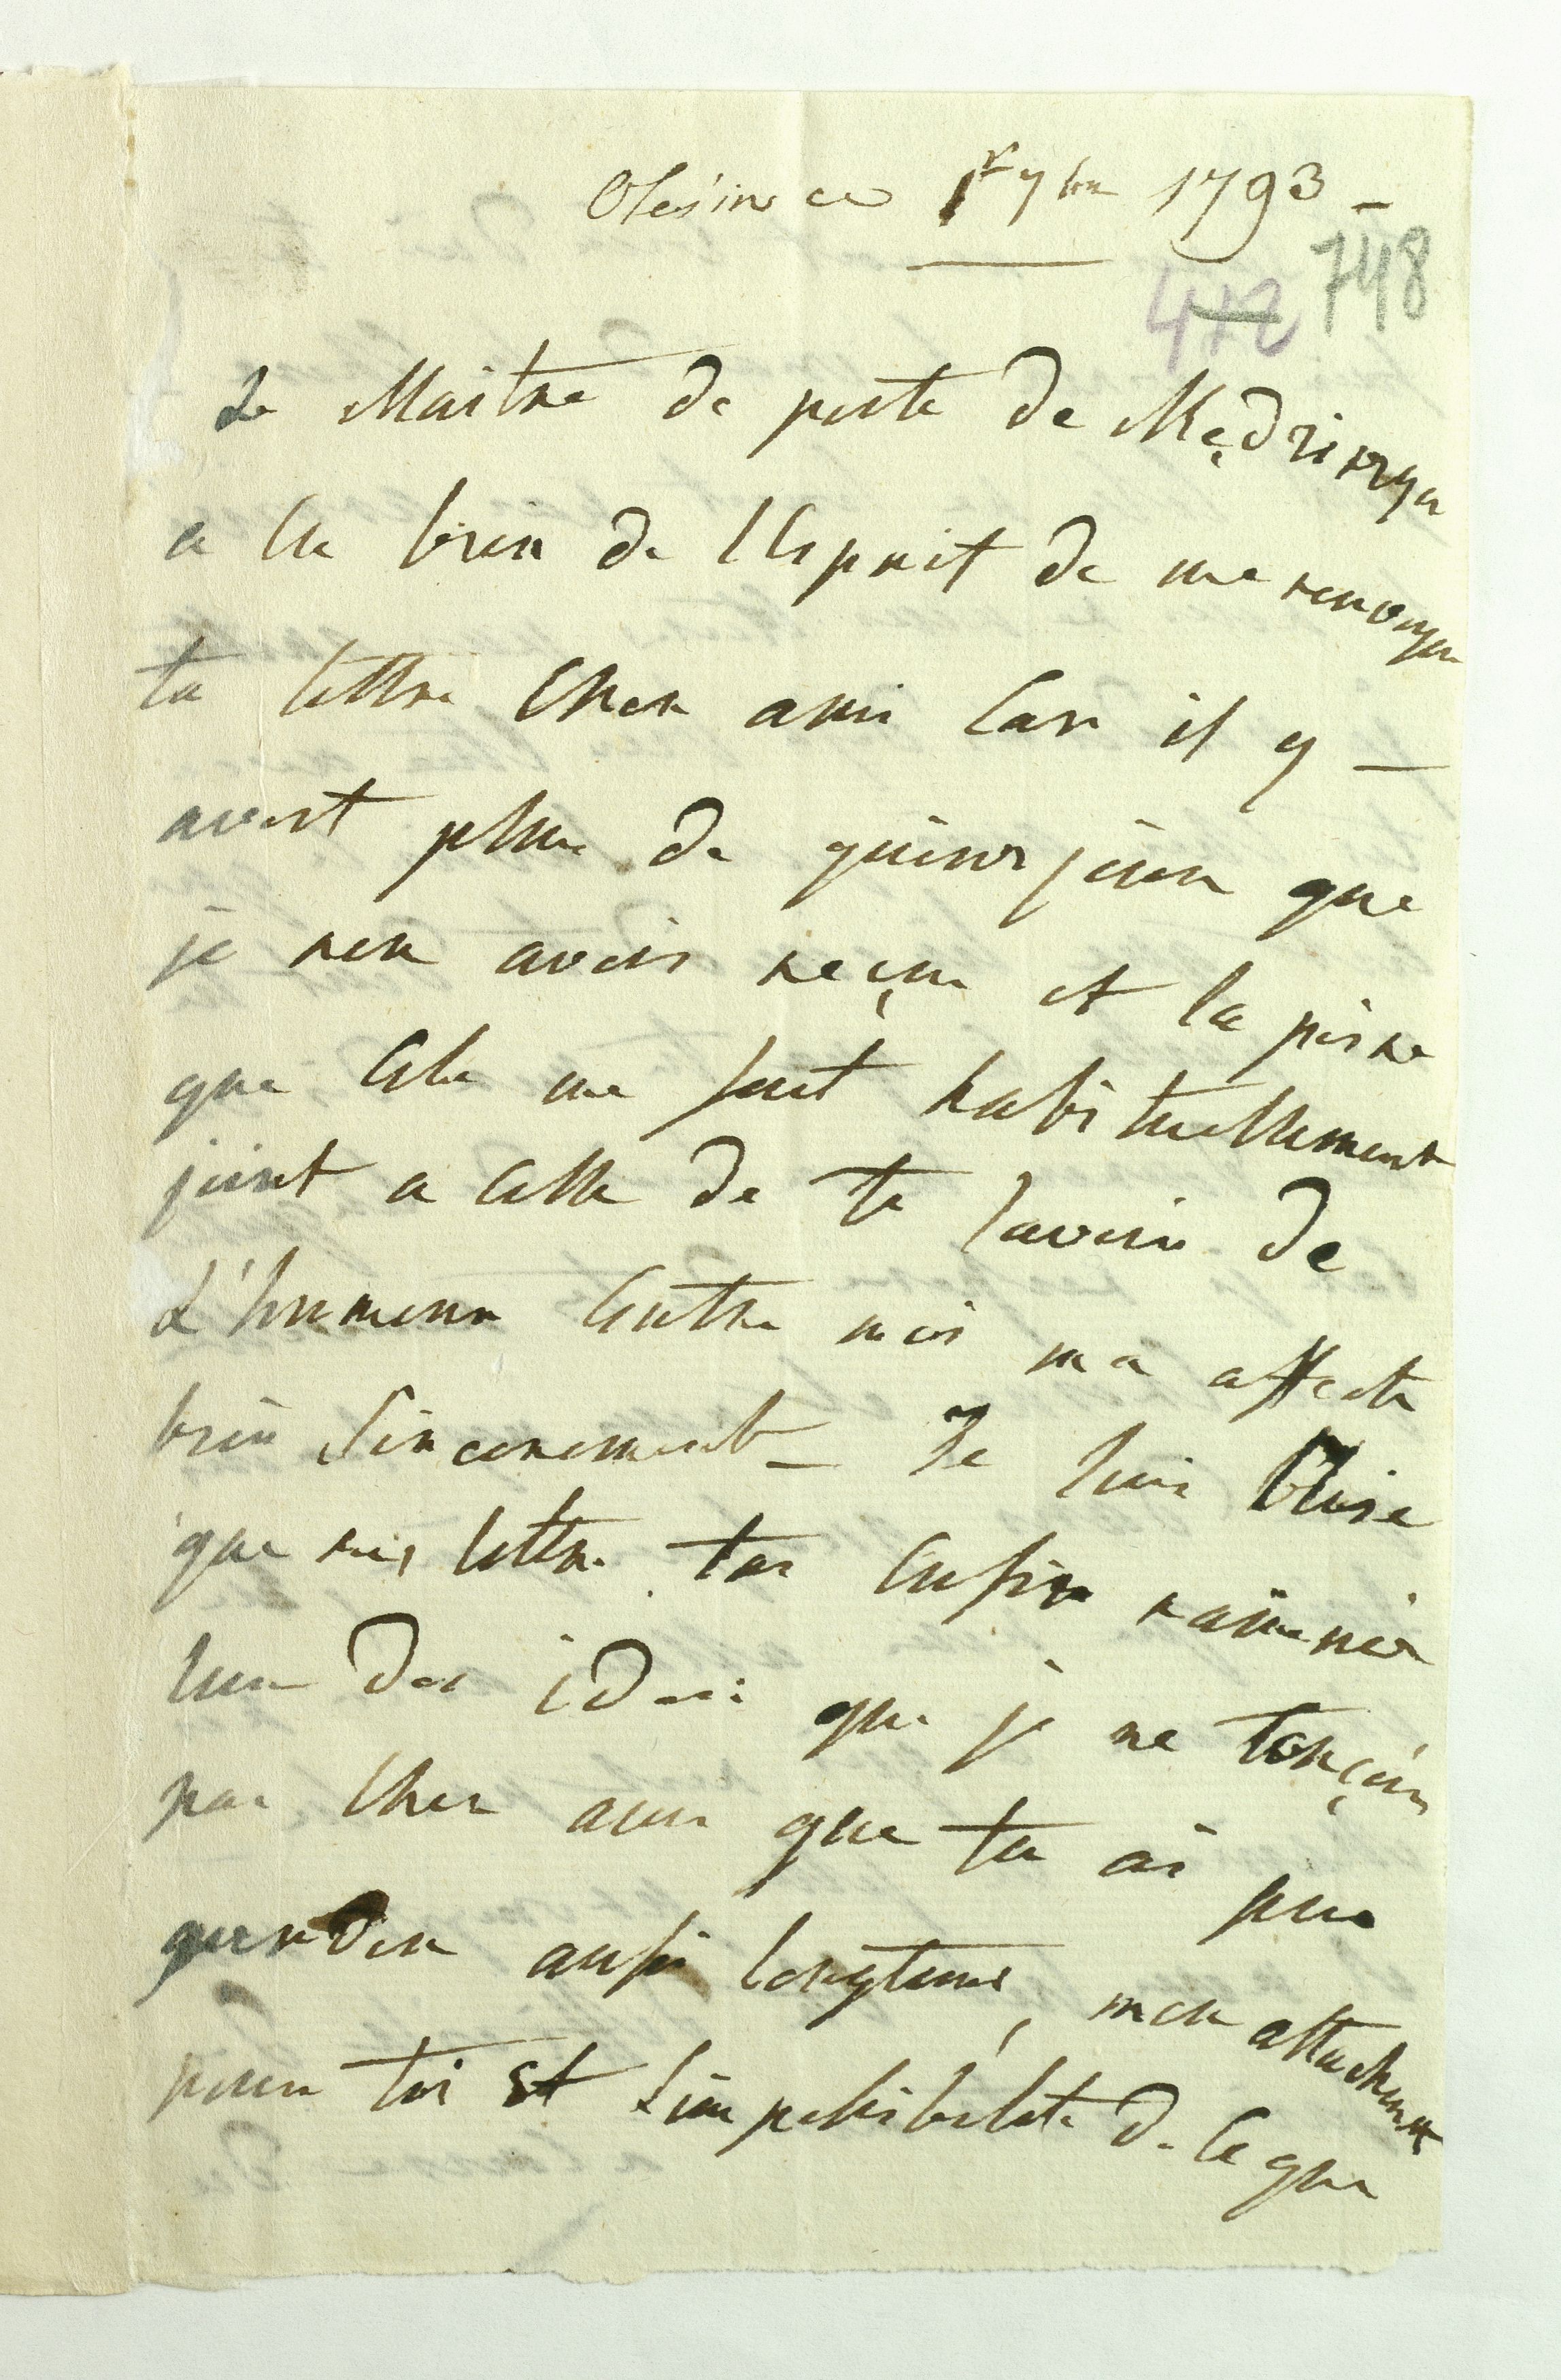 Olesin ce 1r 7bre 1793 -
412 748
Le Maitre de poste de Międzirzyc
a eu bien de l'esprit de me renvoyer
ta lettre cher ami car il y -
avoit plus de quinze jours que
je n'en avois reçue et la peine
que cela me fait habituellement
joint a celle de te savoir de
L'humeur contre moi m'a affecté
bien sincerement - Je suis bien aise
que mes lettre t'ai enfin ramener
sur des idées que je ne conçois
pas cher ami que tu ai pus
garder aussi longtems, mon attachement
pour toi et l'impossibilité de ce que